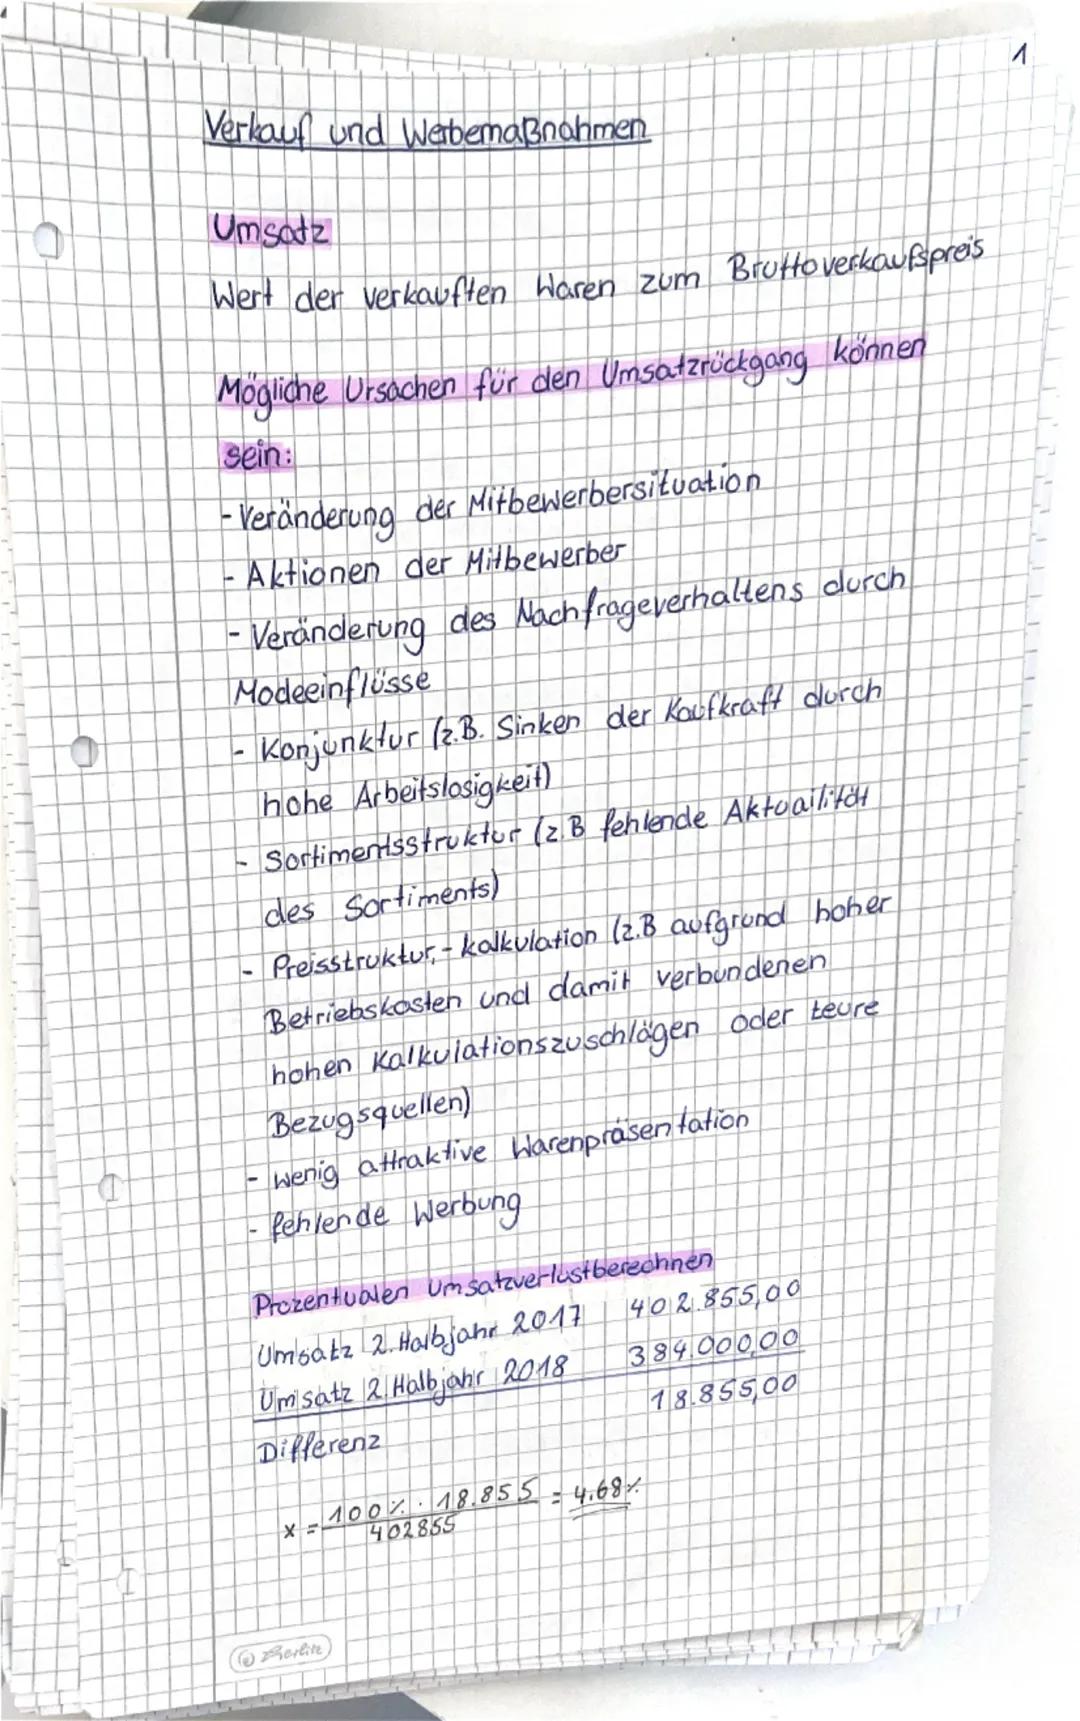 1
Verkauf und Werbemaßnahmen
Umsatz
Wert der verkauften Waren zum Bruttoverkaufspreis
Mögliche Ursachen für den Umsatzrückgang können
sein:
- Veränderung der Mitbewerbersituation
- Aktionen der Mitbewerber
- Veränderung des Nachfrageverhaltens durch
Modeeinflüsse
- Konjunktur (z.B. Sinken der Kaufkraft durch
hohe Arbeitslosigkeit)
- Sortimentsstruktur (z.B fehlende Aktuailität
des Sortiments)
- Preisstruktur,- kalkulation (z.B aufgrund hoher
Betriebskosten und damit verbundenen
hohen Kalkulationszuschlägen oder teure
Bezugsquellen)
- wenig attraktive Warenpräsentation
- fehlende Werbung
Prozentualen Umsatzverlustberechnen
Umsatz 2. Halbjahr 2017 402.855,00
Umsatz 2. Halbjahr 2018 384.000,00
Differenz 18.855,00
x = 100% · 18.855 / 402855 = 4,68%
Berlin